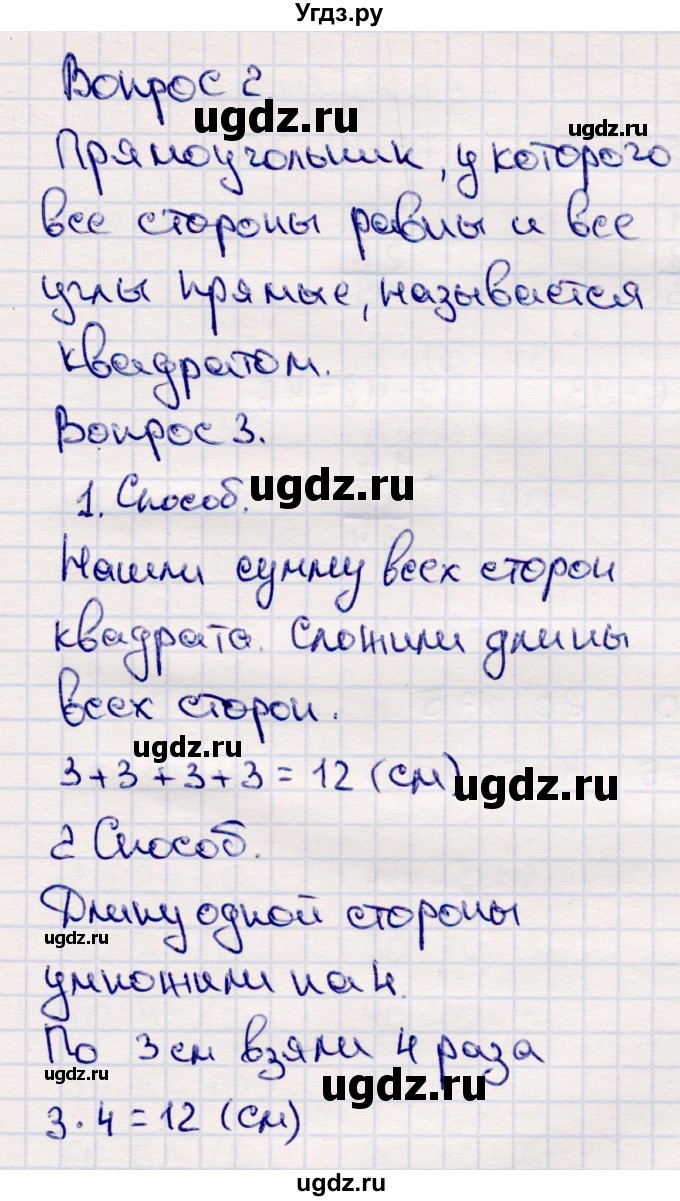 Угдз.ру
Вопрос 2
ugdz.ru
ugdz.ru
Прямоугольник, у которого
все стороны равны и все
углы прямые, называется
квадратом.
Вопрос 3.
1. Способ.
ugdz.ru
Нашли сумму всех сторон
квадрата. Сложили длины
всех сторон.
ugdz.ru
3+3+3+3=12 (см)
ugdz.ru
2 Способ.
Длину одной стороны
ugdz.ru
умножили на 4.
По 3 см взяли 4 раза
ugdz.ru
ugdz.ru
3·4=12 (см)
ugdz.ru